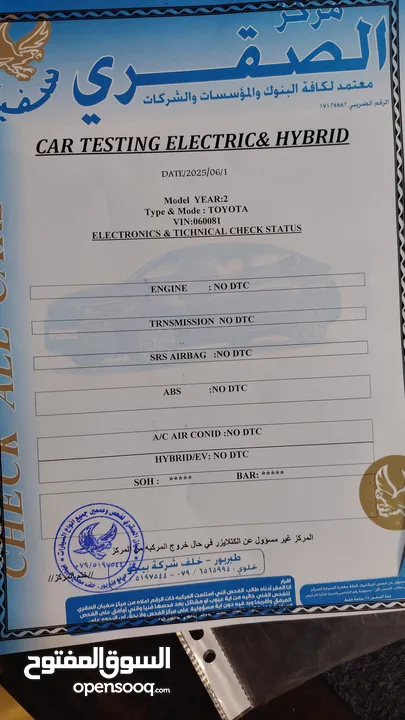 مركز
الصقري
معتمد لكافة البنوك والمؤسسات والشركات
CAR TESTING ELECTRIC& HYBRID
DATE/2025/06/1
Model YEAR:2
Type & Mode : TOYOTA
VIN:060081
ELECTRONICS & TICHNICAL CHECK STATUS
ENGINE :NO DTC
TRNSMISSION NO DTC
SRS AIRBAG :NO DTC
ABS :NO DTC
A/C AIR CONID :NO DTC
HYBRID/EV: NO DTC
SOH : *****
BAR: *****
CHECK ALL CARS
المركز غير مسؤول عن الكتلايزر في حال خروج المركبه من المركز
//ختم المركز//
السوق المفتوح
opensooq.com